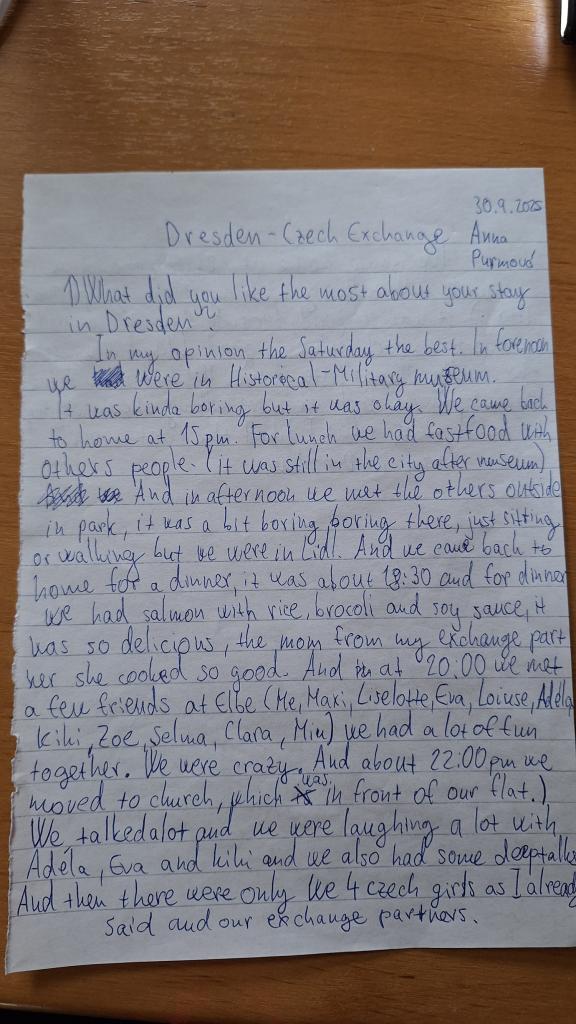 30.9.2025
Dresden-Czech Exchange Anna
Purmová
1) What did you like the most about your stay
in Dresden?
In my opinion the Saturday the best. In forenoon
we were in Historecal-Military museum.
It was kinda boring but it was okay. We came back
to home at 15 pm. For lunch we had fastfood with
others people. (it was still in the city after museum)
And in afternoon we met the others outside
in park, it was a bit boring boring there, just sitting
or walking but we were in Lidl. And we came back to
home for a dinner, it was about 18:30 and for dinner
we had salmon with rice, brocoli and soy sauce, it
was so delicious, the mom from my exchange part
ner she cooked so good. And at 20:00 we met
a few friends at Elbe (Me, Maxi, Liselotte, Eva, Loiuse, Adéla,
Kiki, Zoe, Selma, Clara, Miu) we had a lot of fun
together. We were crazy. And about 22:00 pm we
moved to church, which was in front of our flat.)
We talked alot and we were laughing a lot with
Adéla, Eva and kiki and we also had some deeptalks
And then there were only we 4 czech girls as I already
said and our exchange partners.